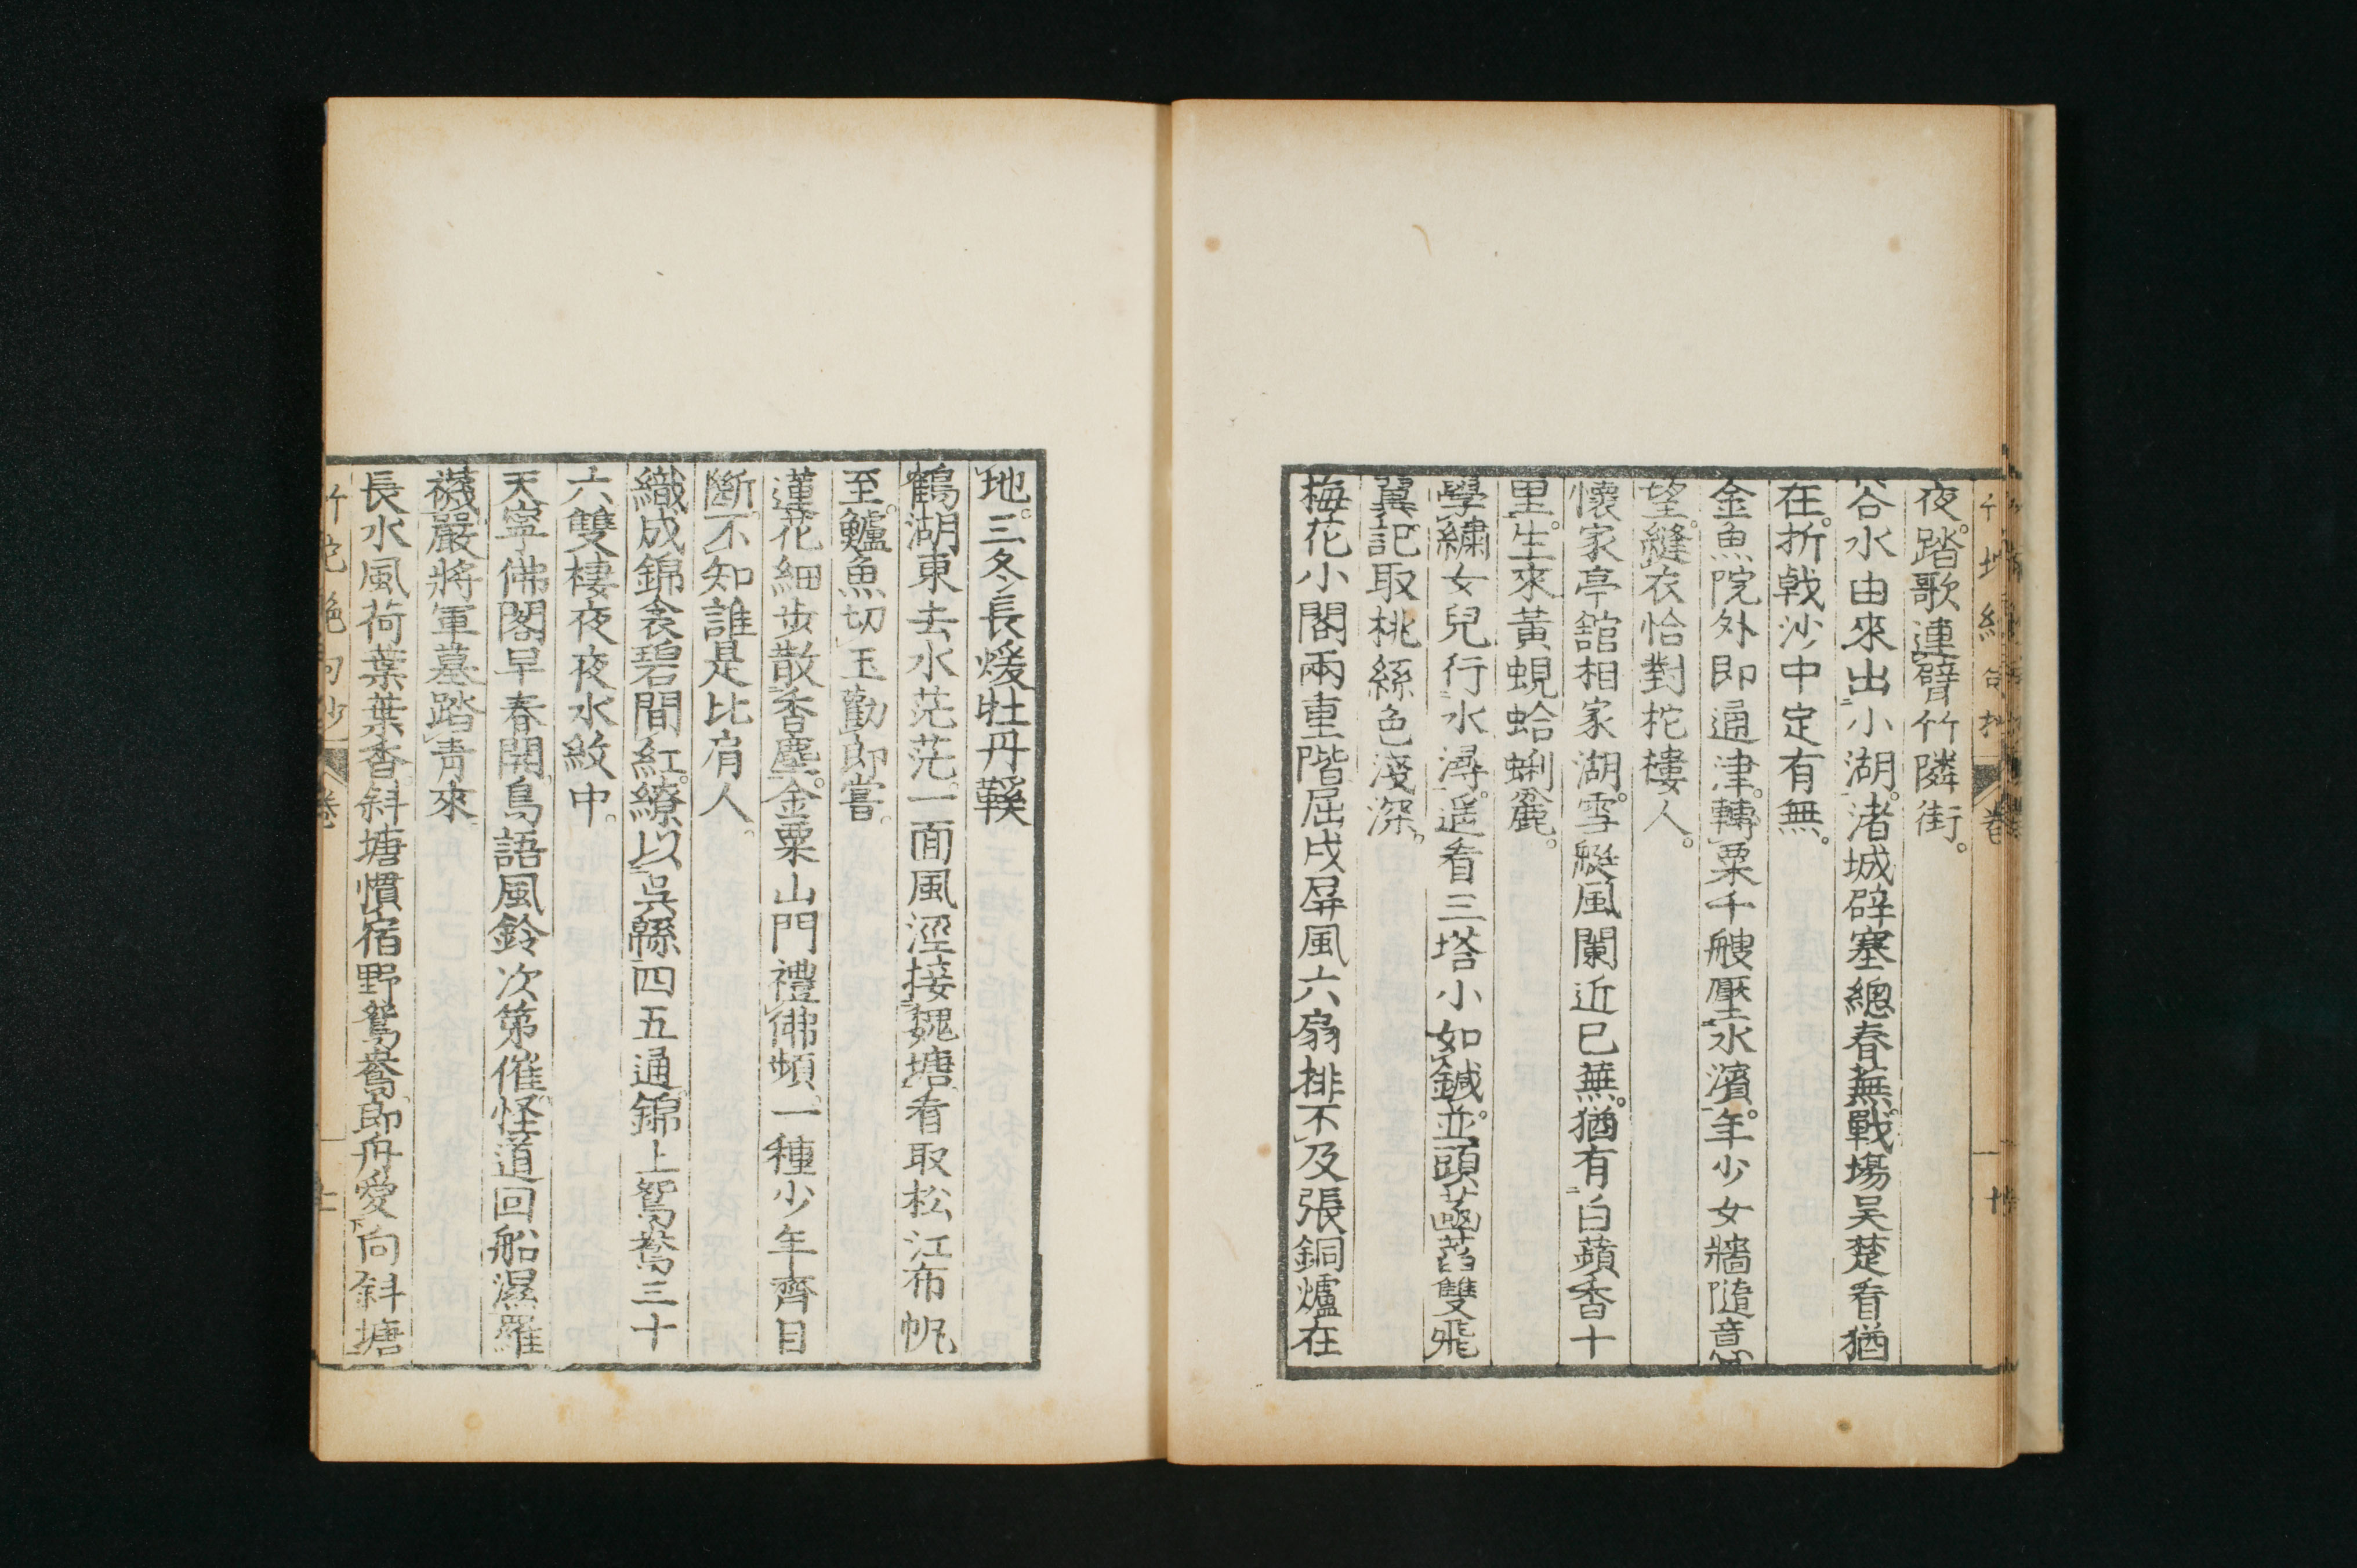 夜。踏歌連臂竹隣街。
谷水由來出小湖。渚城辟塞總春蕪。戰場吴楚看猶
在。折戟沙中定有無。
金魚院外即通津。轉粟千艘壓水濱。年少女牆隨意
望。縫衣恰對柁樓人。
懷家亭舘相家湖。雪艇風闌近已蕪。猶有白蘋香十
里。生來黃蜆蛤蜊麄。
學繡女兒行水潯。遥看三塔小如鍼。並頭菡萏雙飛
翼。記取桃絲色淺深。
梅花小閣兩重階屈戌屏風六扇排不及張銅爐在
地。三冬長煖牡丹鞵
鶴湖東去水茫茫。一面風涇接魏塘。看取松江布帆
至。鱸魚切玉勸郎嘗。
蓮花細步散香塵。金粟山門禮佛頻。一種少年齊目
斷。不知誰是比肩人。
織成錦衾碧間紅。繚以吳緜四五通。錦上鴛鴦三十
六雙棲夜夜水紋中。
天寧佛閣早春開。鳥語風鈴次第催。怪道回船濕羅
襪嚴將軍墓踏青來
長水風荷葉葉香。斜塘慣宿野鴛鴦。郎舟愛向斜塘
竹垞絶句抄 卷